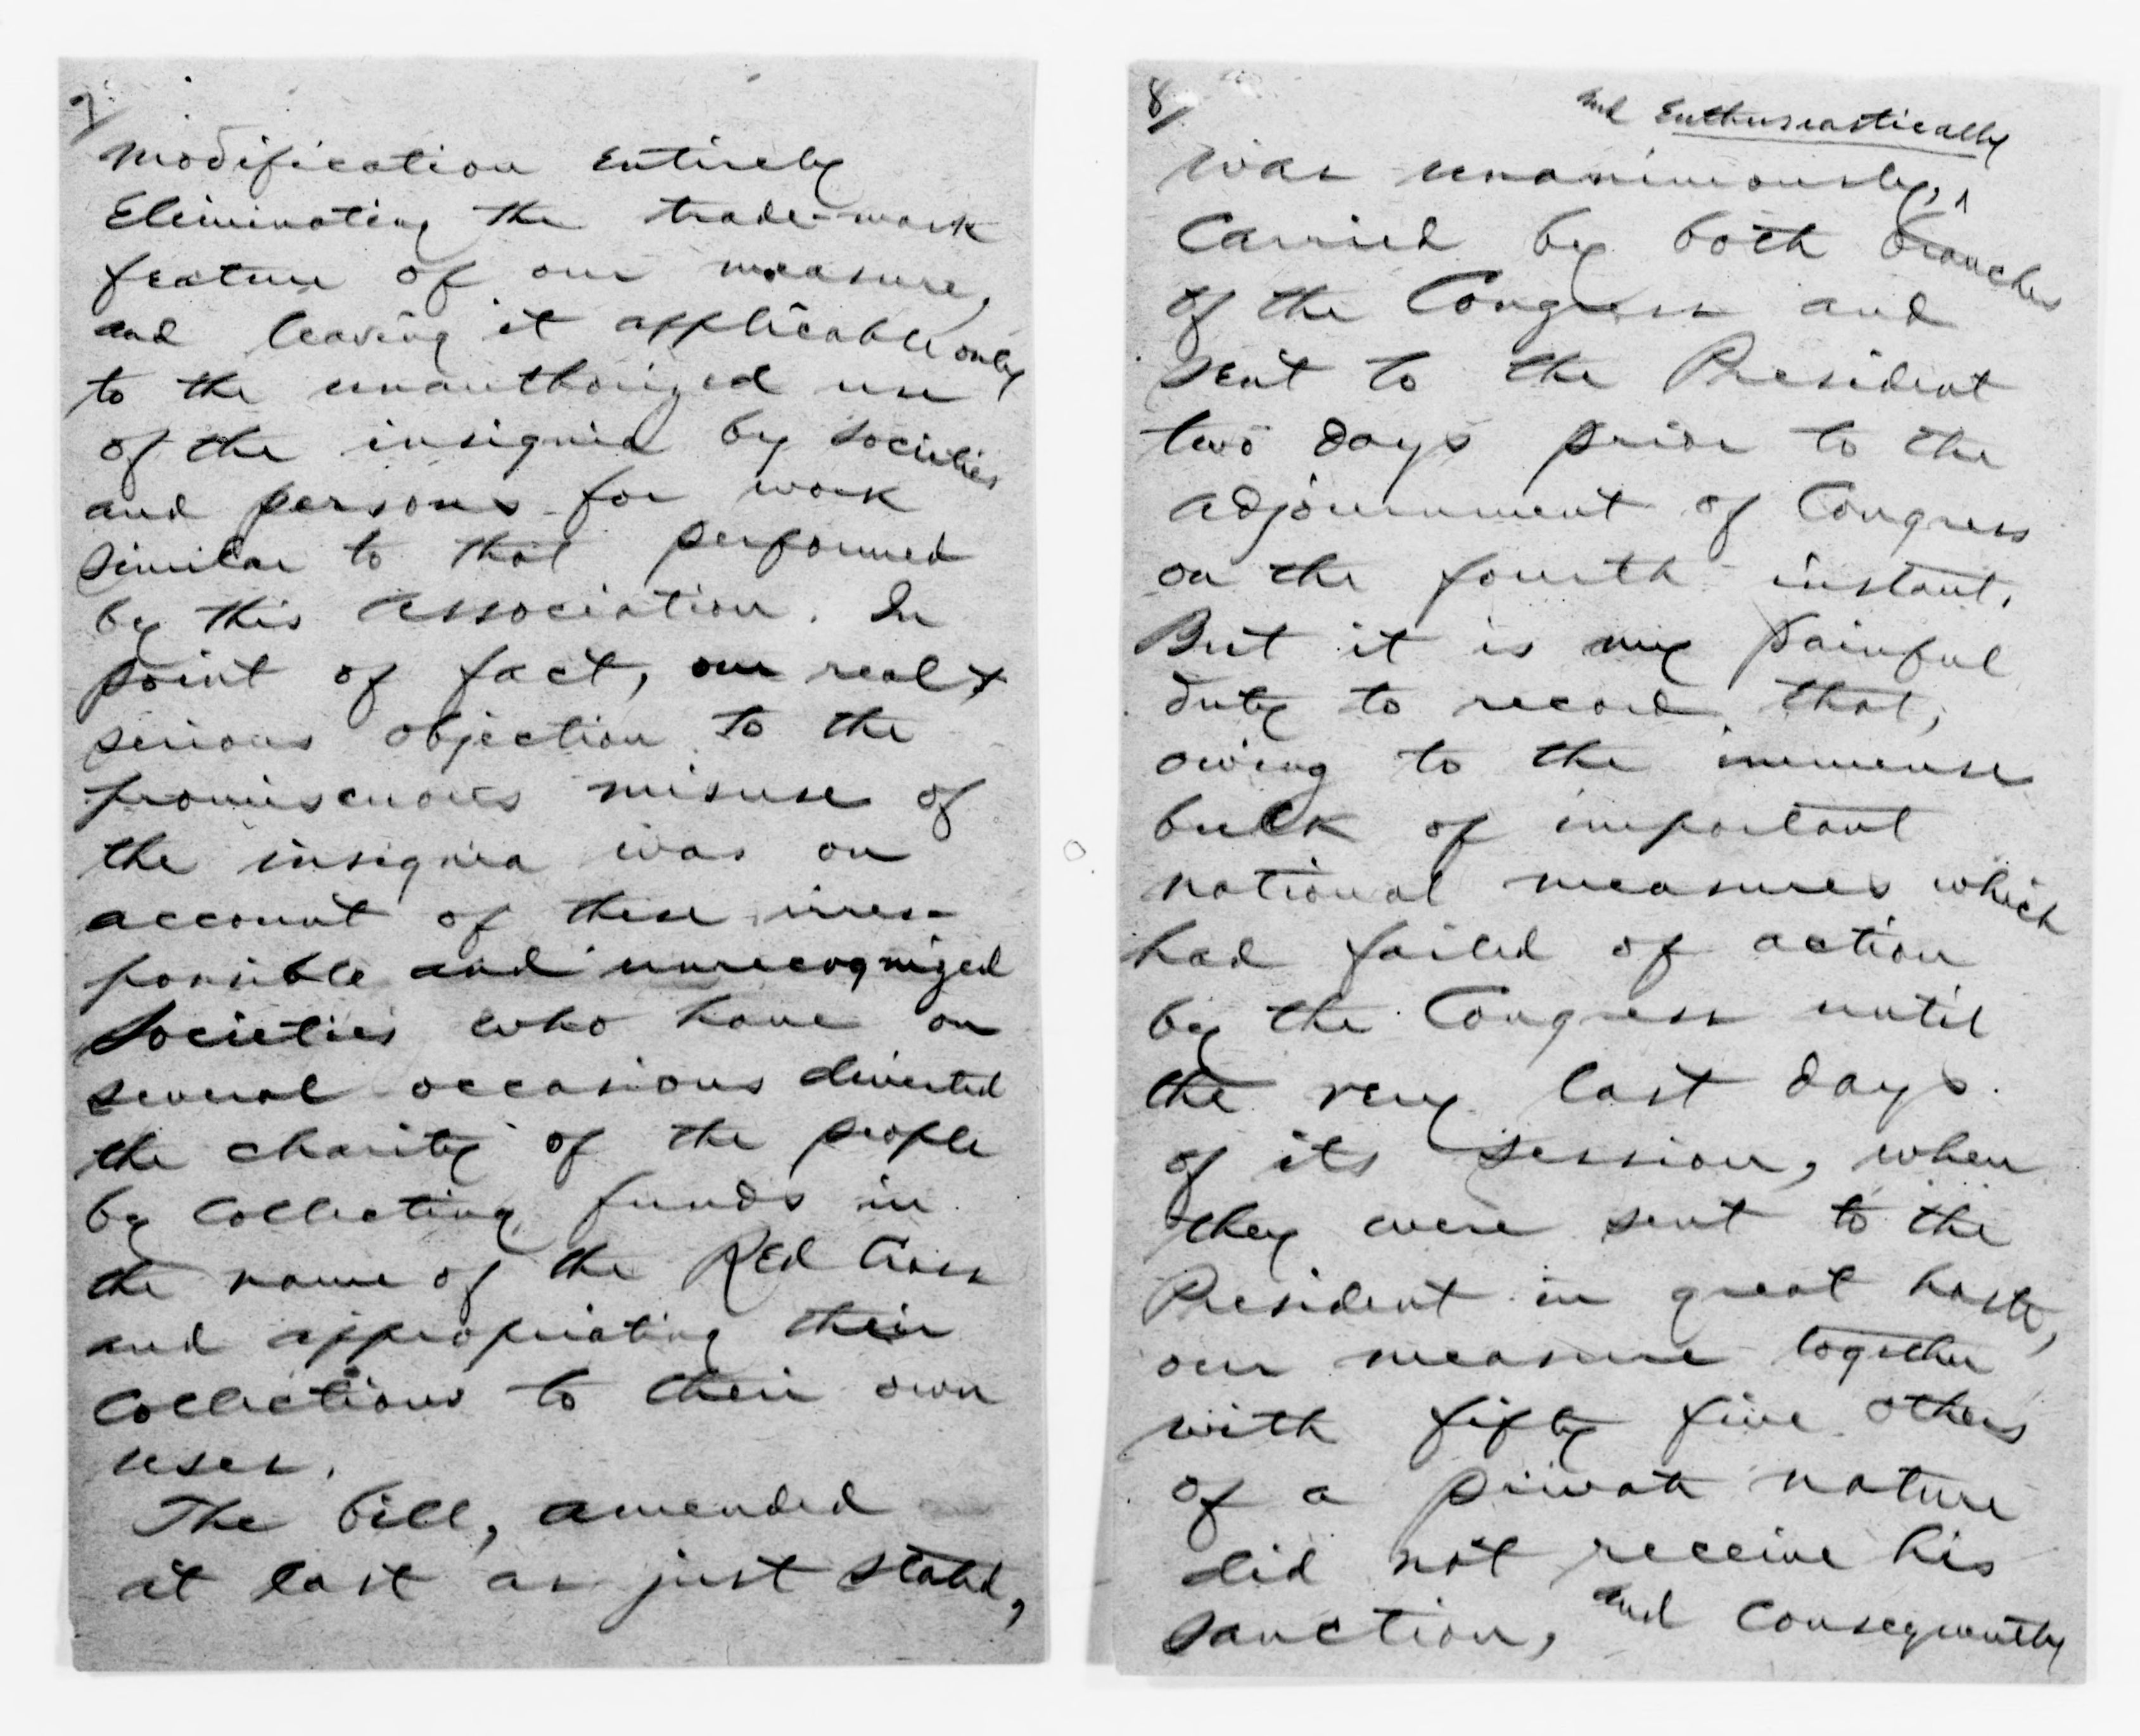 7/
modification entirely
Eliminating the trade-mark
feature of our measure,
and leaving it applicable only
to the unauthorized use
of the insignia by societies
and persons for work
similar to that performed
by this association. In
point of fact, our real +
serious objection to the
promiscuous misuse of
the insignia was on
account of these irres-
ponsible and unrecognized
Societies who have on
several occasions diverted
the charity of the people
by collecting funds in
the name of the Red Cross
and appropriating their
collections to their own
uses.
The bill, amended
at last as just stated,
8/
and Enthusiastically
was unanimously, ^
Carried by both branches
of the Congress and
sent to the President
two days prior to the
adjournment of Congress
on the fourth instant.
But it is my painful
duty to record that,
owing to the immense
bulk of important
national measures which
had failed of action
by the Congress until
the very last days
of its session, when
they were sent to the
President in great haste,
our measure together
with fifty five others
of a private nature
did not receive his
sanction, and consequently